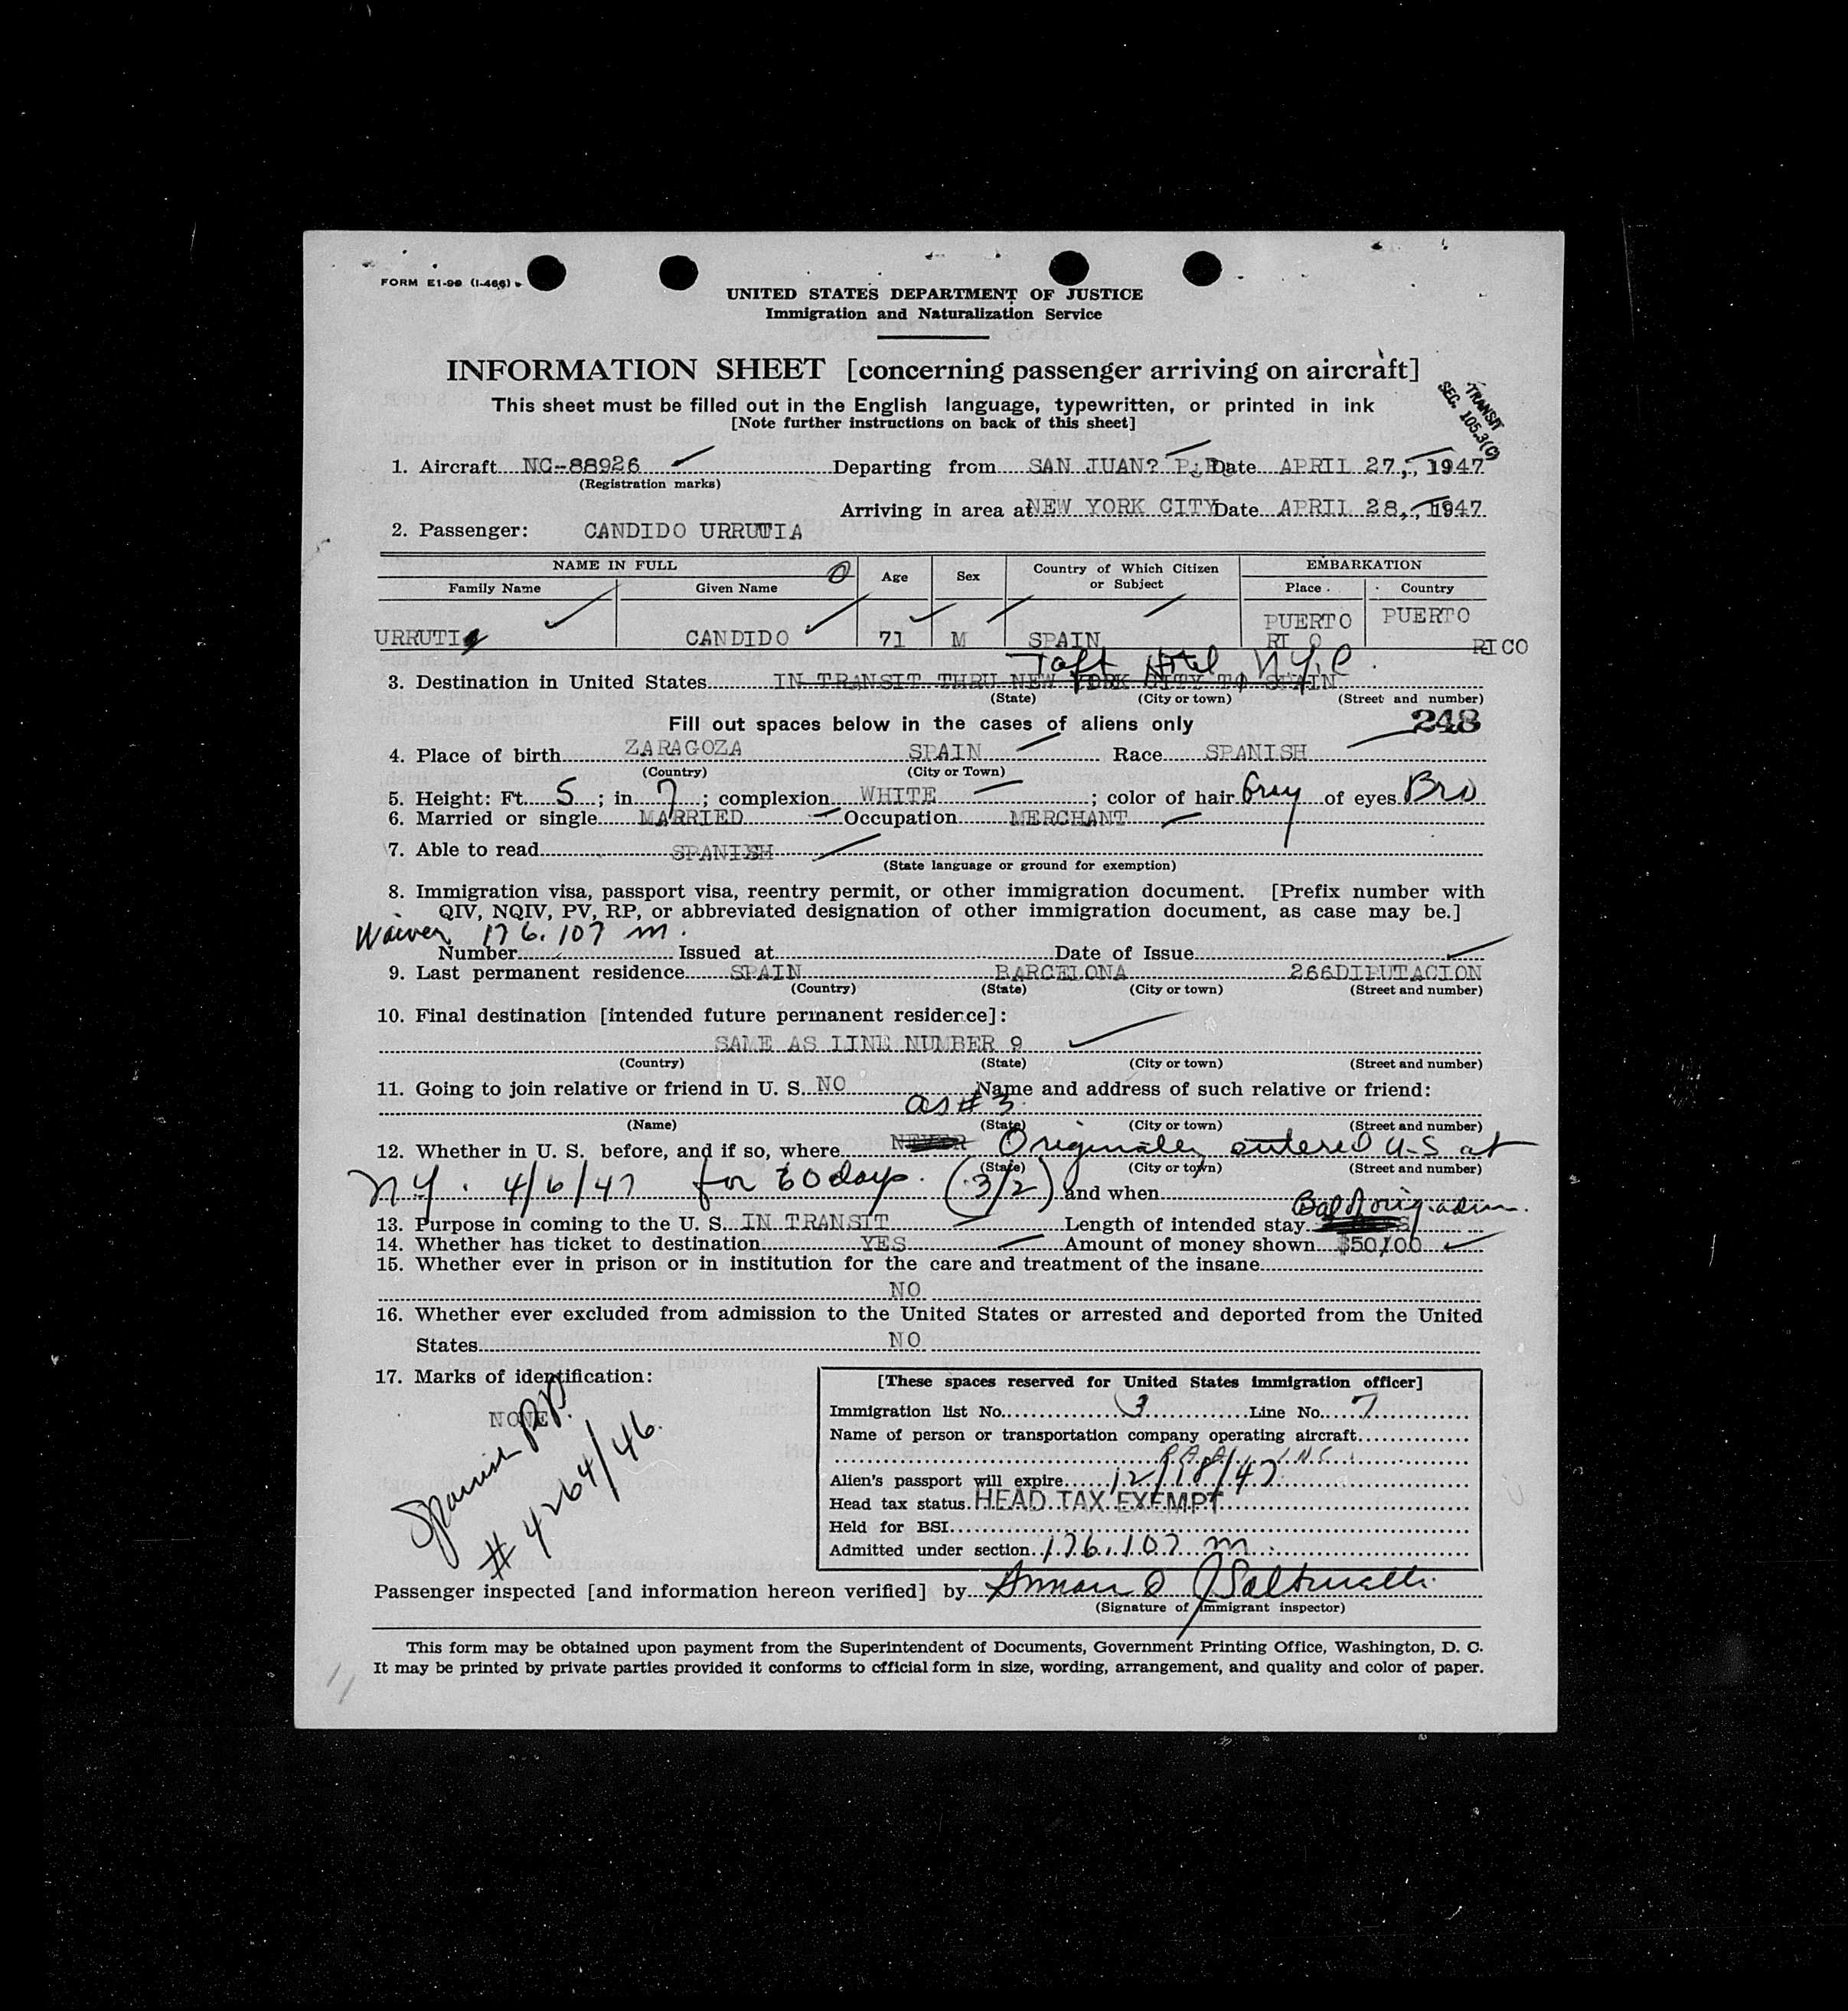 FORM E1-99 (I-466)
UNITED STATES DEPARTMENT OF JUSTICE
Immigration and Naturalization Service
INFORMATION SHEET [concerning passenger arriving on aircraft]
This sheet must be filled out in the English language, typewritten, or printed in ink
[Note further instructions on back of this sheet]
TRANSIT
SEC. 105.3(C)
1. Aircraft NC-88926 Departing from SAN JUAN? P.R. Date APRIL 27, 1947
(Registration marks)
Arriving in area at NEW YORK CITY Date APRIL 28, 1947
2. Passenger: CANDIDO URRUTIA
NAME IN FULL Age Sex Country of Which Citizen or Subject EMBARKATION
Family Name Given Name Place Country
URRUTIA CANDIDO 71 M SPAIN PUERTO RICO PUERTO RICO
Taft Hotel N.Y.C.
3. Destination in United States IN TRANSIT THRU NEW YORK CITY TO SPAIN
(State) (City or town) (Street and number)
Fill out spaces below in the cases of aliens only 248
4. Place of birth ZARAGOZA SPAIN Race SPANISH
(Country) (City or Town)
5. Height: Ft. 5 ; in 7 ; complexion WHITE ; color of hair Grey of eyes Bro
6. Married or single MARRIED Occupation MERCHANT
7. Able to read SPANISH
(State language or ground for exemption)
8. Immigration visa, passport visa, reentry permit, or other immigration document. [Prefix number with
QIV, NQIV, PV, RP, or abbreviated designation of other immigration document, as case may be.]
Waiver 176.107 m.
Number Issued at Date of Issue
9. Last permanent residence SPAIN BARCELONA 266DIPUTACION
(Country) (State) (City or town) (Street and number)
10. Final destination [intended future permanent residence]:
SAME AS LINE NUMBER 9
(Country) (State) (City or town) (Street and number)
11. Going to join relative or friend in U. S. NO Name and address of such relative or friend:
as # 3
(Name) (State) (City or town) (Street and number)
12. Whether in U. S. before, and if so, where NEVER Originally entered U.S at
(State) (City or town) (Street and number)
NY. 4/6/47 for 60 days. (3/2) and when
Bal of orig. adm.
13. Purpose in coming to the U. S. IN TRANSIT Length of intended stay
14. Whether has ticket to destination YES Amount of money shown $50/00
15. Whether ever in prison or in institution for the care and treatment of the insane
NO
16. Whether ever excluded from admission to the United States or arrested and deported from the United
States NO
17. Marks of identification:
NONE
Spanish P.P.
# 4264/46.
[These spaces reserved for United States immigration officer]
Immigration list No. 3 Line No. 7
Name of person or transportation company operating aircraft
P.A.A. INC.
Alien's passport will expire 12/18/47
Head tax status HEAD TAX EXEMPT
Held for BSI
Admitted under section 176.107 m.
Passenger inspected [and information hereon verified] by
(Signature of immigrant inspector)
This form may be obtained upon payment from the Superintendent of Documents, Government Printing Office, Washington, D. C.
It may be printed by private parties provided it conforms to official form in size, wording, arrangement, and quality and color of paper.